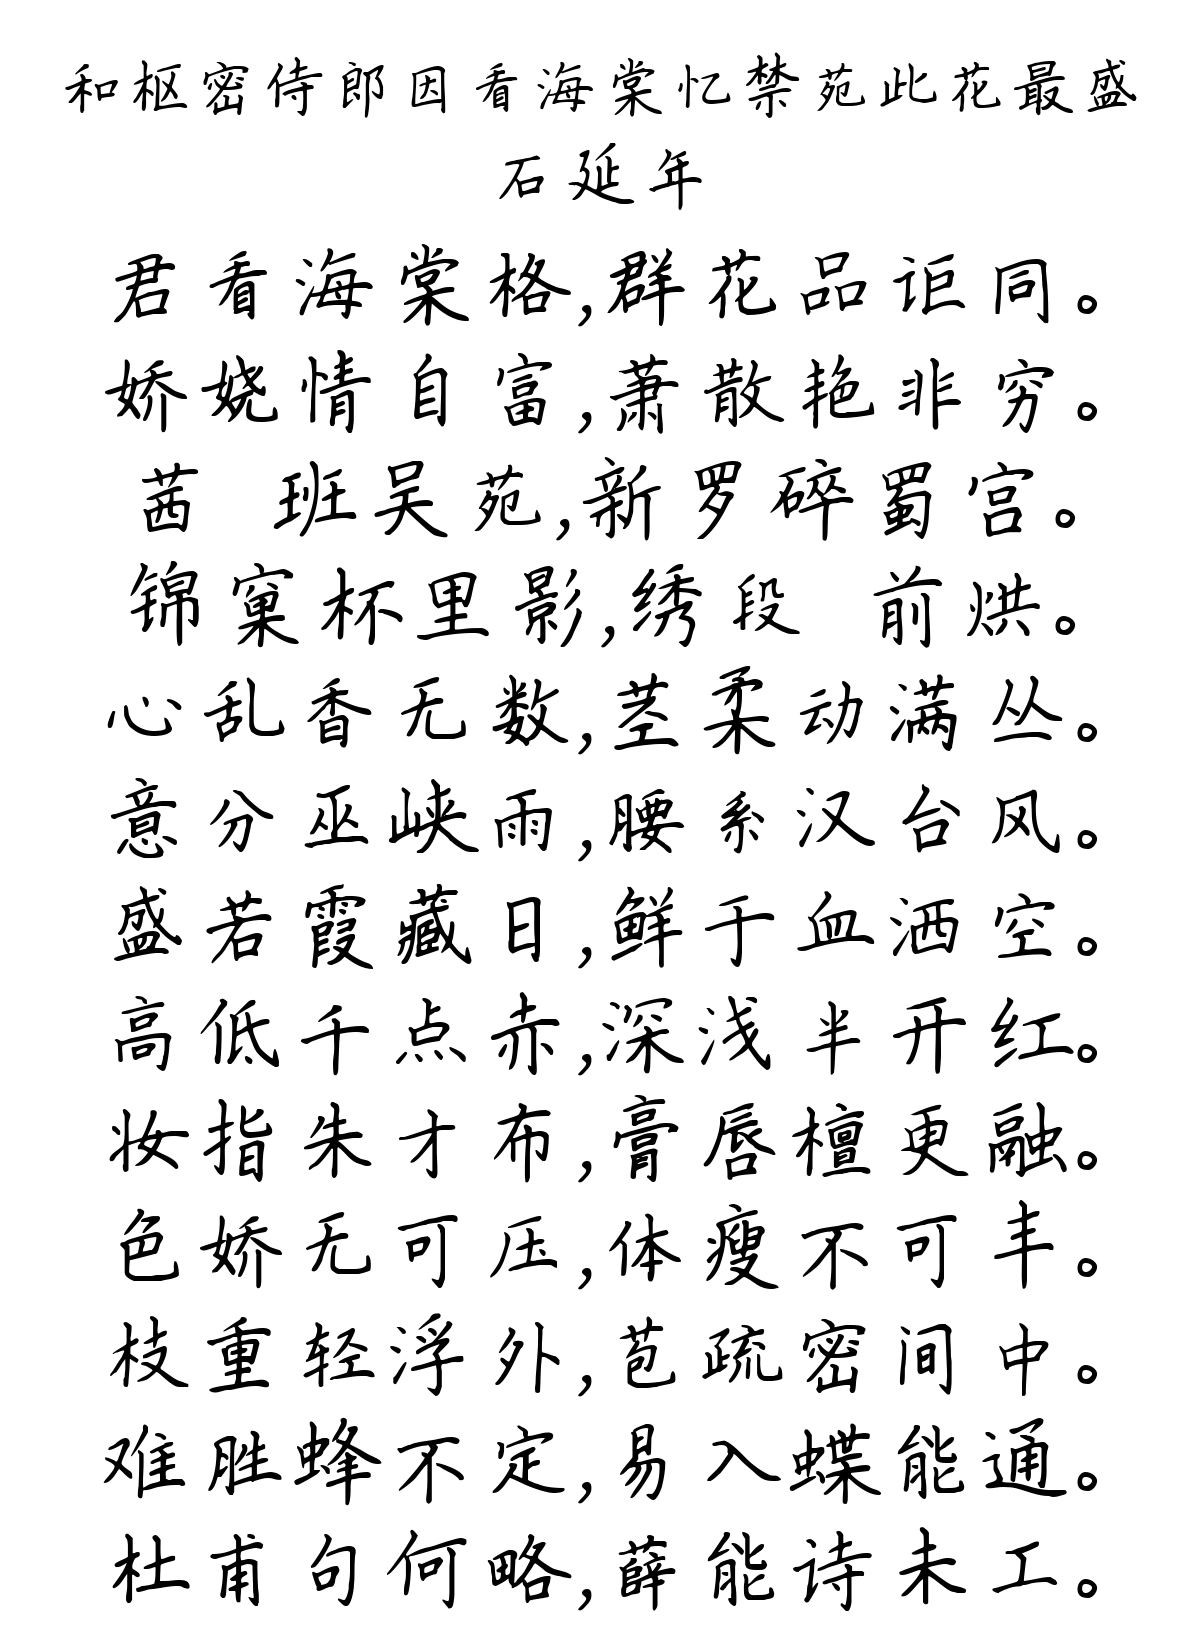 和枢密侍郎因看海棠忆禁苑此花最盛
石延年
君看海棠格,群花品讵同。
娇娆情自富,萧散艳非穷。
茜 班吴苑,新罗碎蜀宫。
锦窠杯里影,绣段 前烘。
心乱香无数,茎柔动满丛。
意分巫峡雨,腰系汉台风。
盛若霞藏日,鲜于血洒空。
高低千点赤,深浅半开红。
妆指朱才布,膏唇檀更融。
色娇无可压,体瘦不可丰。
枝重轻浮外,苞疏密间中。
难胜蜂不定,易入蝶能通。
杜甫句何略,薛能诗未工。